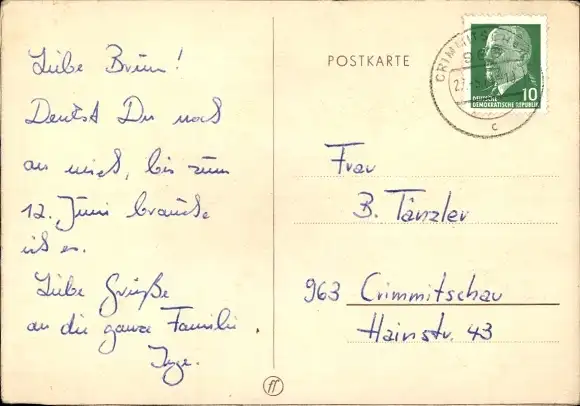 Liebe Brün!
Denkst Du noch
an mich, bis zum
12. Juni brauche
ich es.
Liebe Grüße
an die ganze Familie.
Inge.
POSTKARTE
CRIMMITSCHAU
963
27.
c
10
DEUTSCHE
DEMOKRATISCHE REPUBLIK
Frau
B. Tänzler
963 Crimmitschau
Hainstr. 43